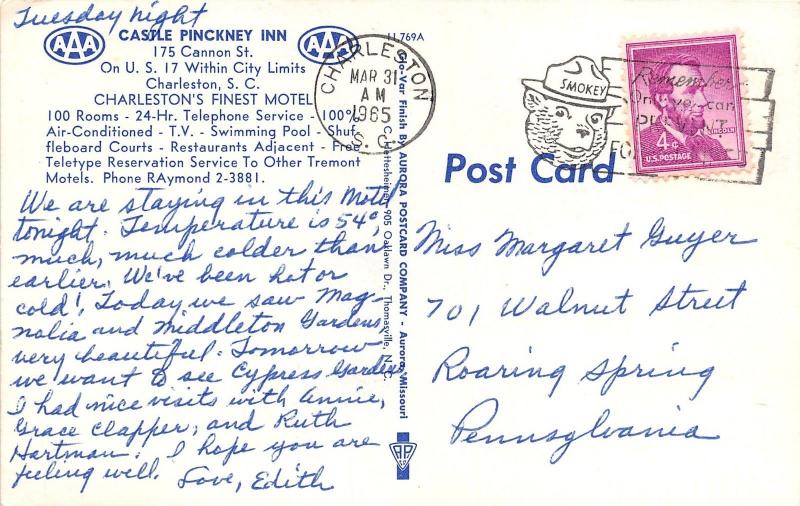 Tuesday night
AAA
CASTLE PINCKNEY INN
AAA
175 Cannon St.
On U. S. 17 Within City Limits
Charleston, S. C.
CHARLESTON'S FINEST MOTEL
100 Rooms - 24-Hr. Telephone Service - 100%
Air-Conditioned - T.V. - Swimming Pool - Shuf-
fleboard Courts - Restaurants Adjacent - Free
Teletype Reservation Service To Other Tremont
Motels. Phone RAymond 2-3881.
We are staying in this Motel
tonight. Temperature is 54°,
much, much colder than
earlier. We've been hot or
cold! Today we saw Mag-
nolia and Middleton Gardens,
very beautiful. Tomorrow
we want to see Cypress Gardens
I had nice visits with Annie,
Grace Clapper, and Ruth
Hartman. I hope you are
feeling well. Love, Edith
11,769A
Glo-Var Finish By AURORA POSTCARD COMPANY - Aurora, Missouri
C. Hattesheimer, 905 Oaklawn Dr., Thomasville, N. C.
APC
CHARLESTON
MAR 31
AM
1965
S. C.
SMOKEY
Remember...
Only you can
PREVENT
FO
LINCOLN
4¢
U.S. POSTAGE
Post Card
Miss Margaret Guyer
701 Walnut Street
Roaring Spring
Pennsylvania